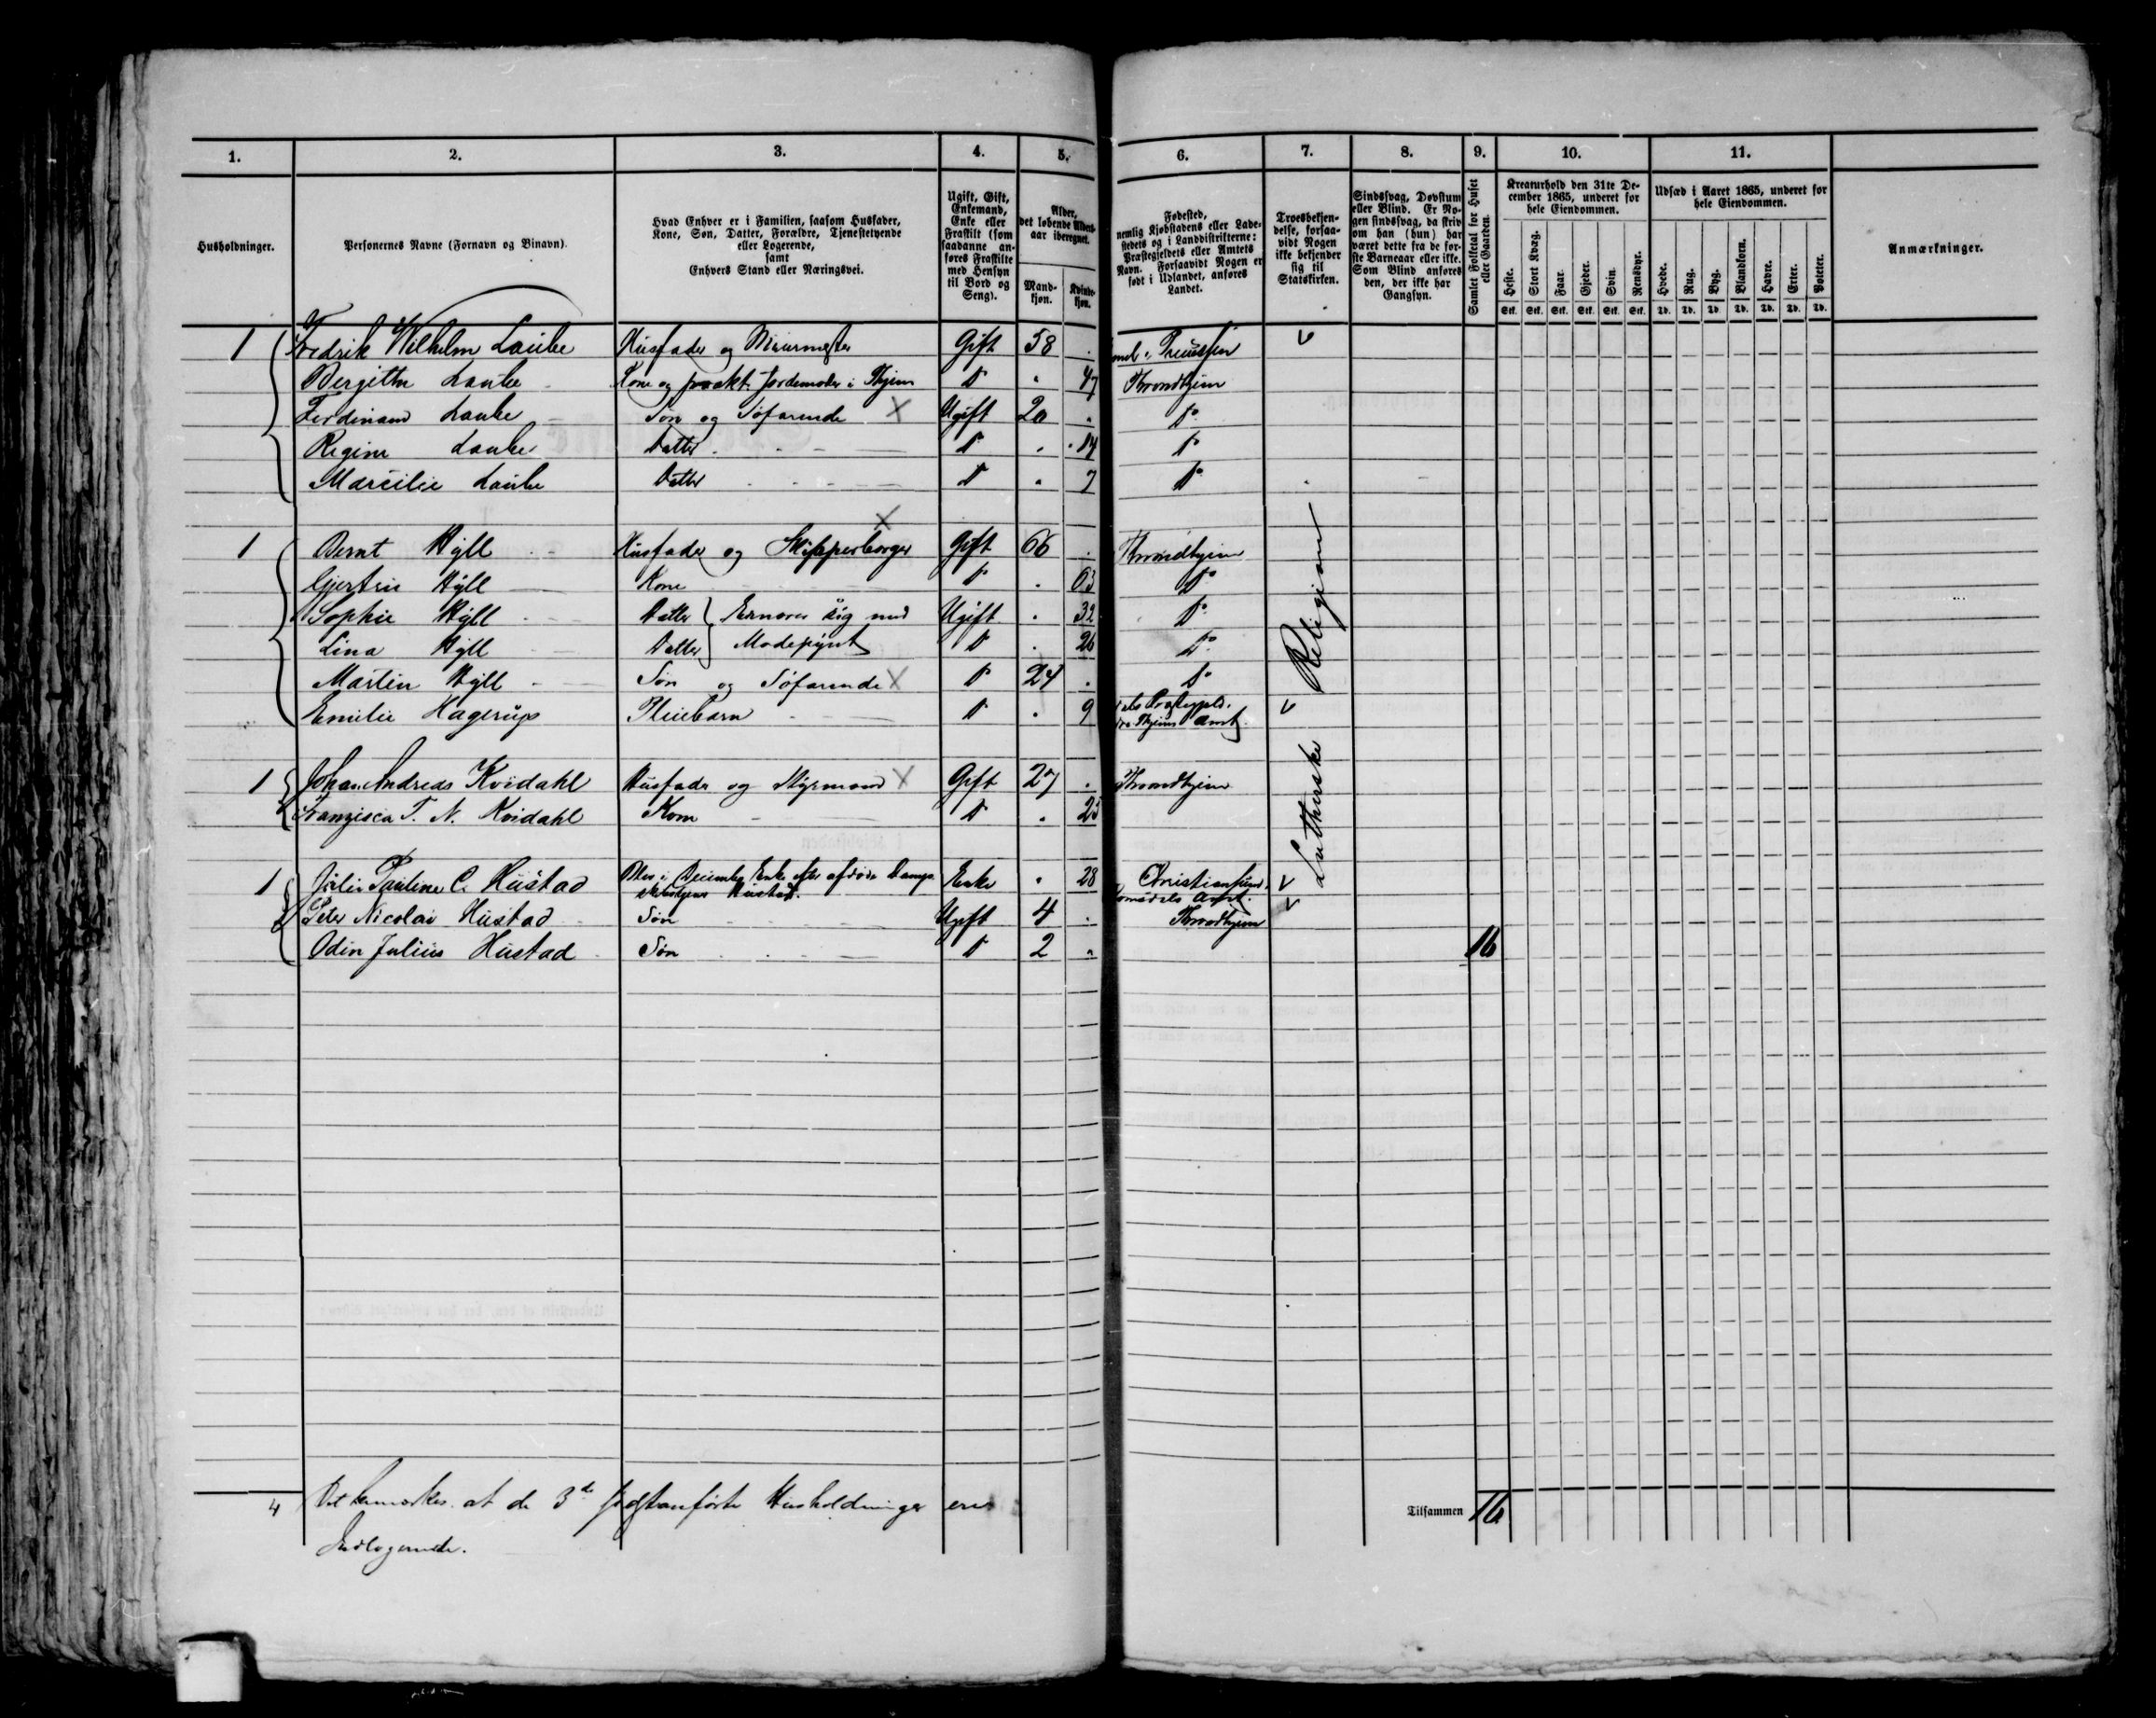 1. 2. 3. 4. 5. 6. 7. 8. 9. 10. 11.
Husholdninger.
Personernes Navne (Fornavn og Binavn).
Hvad Enhver er i Familien, saasom Husfader,
Kone, Søn, Datter, Forældre, Tjenestetyende
eller Logerende,
samt
Enhvers Stand eller Næringsvei.
Ugift, Gift,
Enkemand,
Enke eller
Fraskilt (som
saadanne an-
føres Fraskilte
med Hensyn
til Bord og
Seng).
Alder,
det løbende Alders-
aar iberegnet.
Mand-
kjøn.
Kvinde-
kjøn.
Fødested,
nemlig Kjøbstadens eller Lade-
stedets og i Landdistrikterne:
Præstegjeldets eller Amtets
Navn. Forsaavidt Nogen er
født i Udlandet, anføres
Landet.
Troesbekjen-
delse, forsaa-
vidt Nogen
ikke bekjender
sig til
Statskirken.
Sindssvag, Døvstum
eller Blind. Er No-
gen sindssvag, da skriv
om han (hun) har
været dette fra de før-
ste Barneaar eller ikke.
Som Blind anføres
den, der ikke har
Gangsyn.
Samlet Folketal for Huset
eller Gaarden.
Kreaturhold den 31te De-
cember 1865, underet for
hele Eiendommen.
Heste. Stort Kvæg. Faar. Gjeder. Svin. Rensdyr.
Stk. Stk. Stk. Stk. Stk. Stk.
Udsæd i Aaret 1865, underet for
hele Eiendommen.
Hvede. Rug. Byg. Blandkorn. Havre. Erter. Poteter.
Td. Td. Td. Td. Td. Td. Td.
Anmærkninger.
1 Fredrik Wilhelm Laube Husfader og Muurmester Gift 58 Preussen
Bergitte Laube Kone og prakt. Jordemoder i Thjem Do 47 Throndhjem
Ferdinand Laube Søn og Søfarende X Ugift 20 Do
Regine Laube Datter Do 14 Do
Marcilie Laube Datter Do 7 Do
1 Bernt Hÿll Husfader og Skipperborger X Gift 66 Throndhjem
Gjertru Hÿll Kone Do 63 Do
Sophie Hÿll Datter Ernærer sig med Ugift 32 Do
Lina Hÿll Datter Modepÿnt Do 26 Do
Martin Hÿll Søn og Søfarende X Do 24 Do
Emilie Hagerup Pleiebarn Do 9 dals Præstegjeld.
Thjems Amt
1 Johan Andreas Kvidahl Husfader og Stÿrmand X Gift 27 Throndhjem
Franzisca T. N. Kvidahl Kone Do 25
1 Julie Pauline C. Hustad Blev i December Enke efter afdøde Damp Enke 28 Christiansund
Hustad. Romsdals Amt.
Peter Nicolai Hustad Søn Ugift 4 Throndhjem
Odin Julius Hustad Søn Do 2 16
Lutherske Religion
4 Det bemærkes at de 3de sidstanførte Husholdninger ere
Indlogerende.
Tilsammen 16